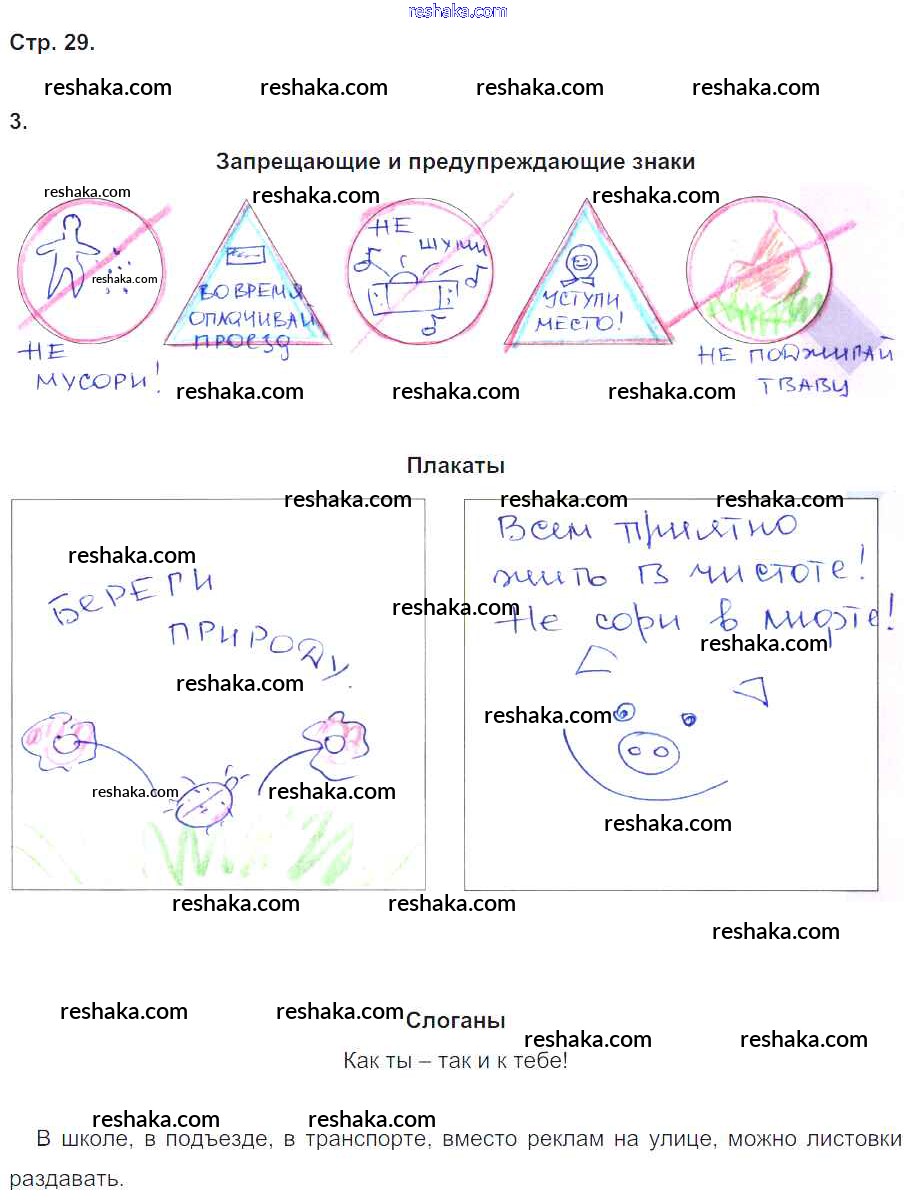 reshaka.com
Стр. 29.
reshaka.com reshaka.com reshaka.com reshaka.com
3.
Запрещающие и предупреждающие знаки
reshaka.com reshaka.com reshaka.com
НЕ
ШУМИ
reshaka.com
ВО ВРЕМЯ
ОПЛАЧИВАЙ
ПРОЕЗД
УСТУПИ
МЕСТО!
НЕ
МУСОРИ!
НЕ ПОДЖИГАЙ
ТВАВУ
reshaka.com reshaka.com reshaka.com
Плакаты
reshaka.com reshaka.com reshaka.com
Всем приятно
reshaka.com
жить в чистоте!
БЕРЕГИ
reshaka.com
Не сори в лифте!
ПРИРОДУ.
reshaka.com
reshaka.com
reshaka.com
reshaka.com reshaka.com
reshaka.com
reshaka.com reshaka.com
reshaka.com
reshaka.com reshaka.com
Слоганы
reshaka.com reshaka.com
Как ты – так и к тебе!
reshaka.com reshaka.com
В школе, в подъезде, в транспорте, вместо реклам на улице, можно листовки
раздавать.